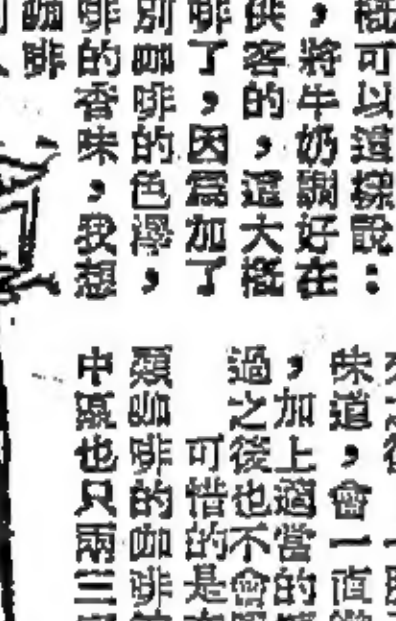 概可以這樣說：
，將牛奶調好在
供客的，還大概
啡了，因爲加了
別咖啡的色澤，
啡的香味，我想
咖啡
味道，會一直
，加上適當的
過之後也不會
可惜的是
類咖啡的咖啡
中區也只兩三